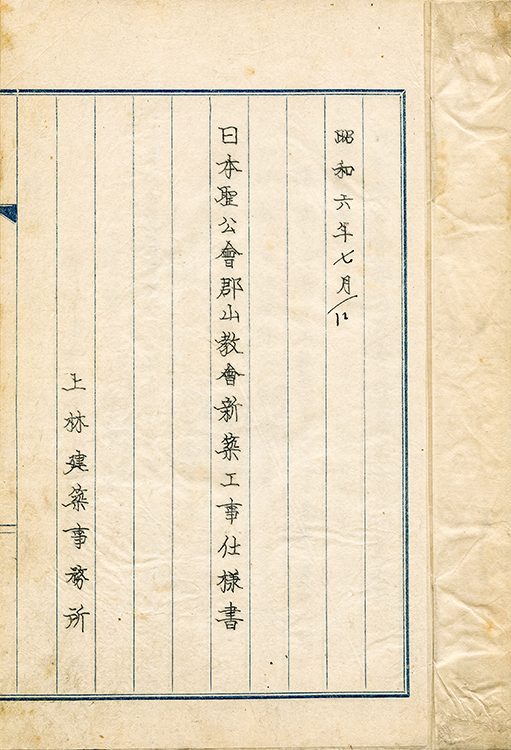 昭和六年七月
日本聖公會郡山教會新築工事仕様書
上林建築事務所